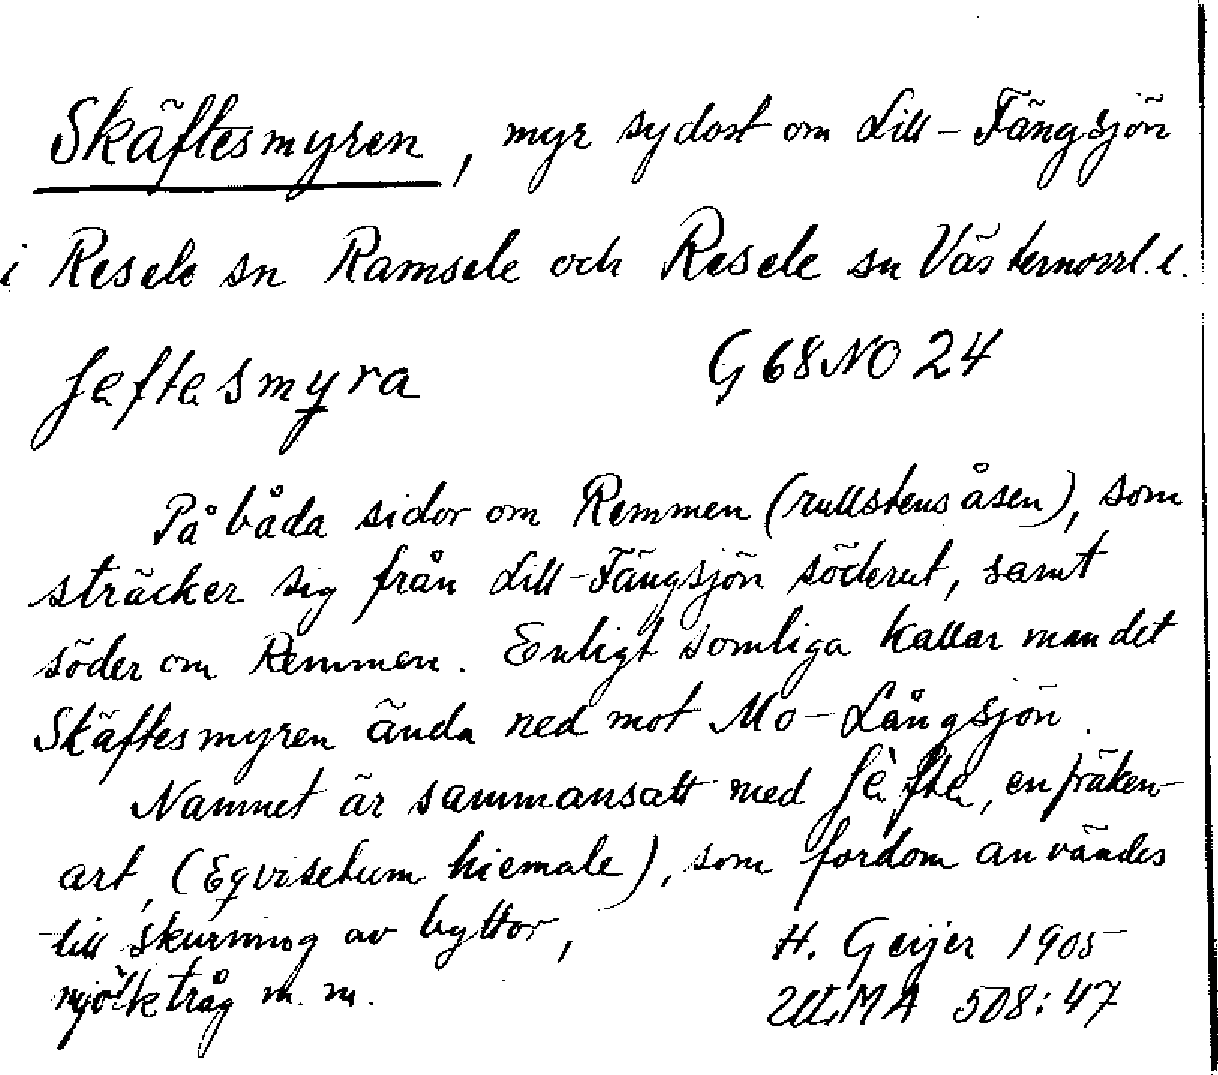 Skäftesmyren, myr sydost om Lill-Tängsjön
i Resele sn Ramsele och Resele sn Västernorrl. l.
ʃeftesmyra G 68 NO 24
På båda sidor om Remmen (rullstensåsen), som
sträcker sig från Lill-Tängsjön söderut, samt
söder om Remmen. Enligt somliga kallar man det
Skäftesmyren ända ned mot Mo-Långsjön.
Namnet är sammansatt med ʃèfte, en fräken-
art, (Eqvisetum hiemale), som fordom användes
till skurning av byttor,
mjölktråg m.m.
H. Geijer 1905
ULMA 508:47